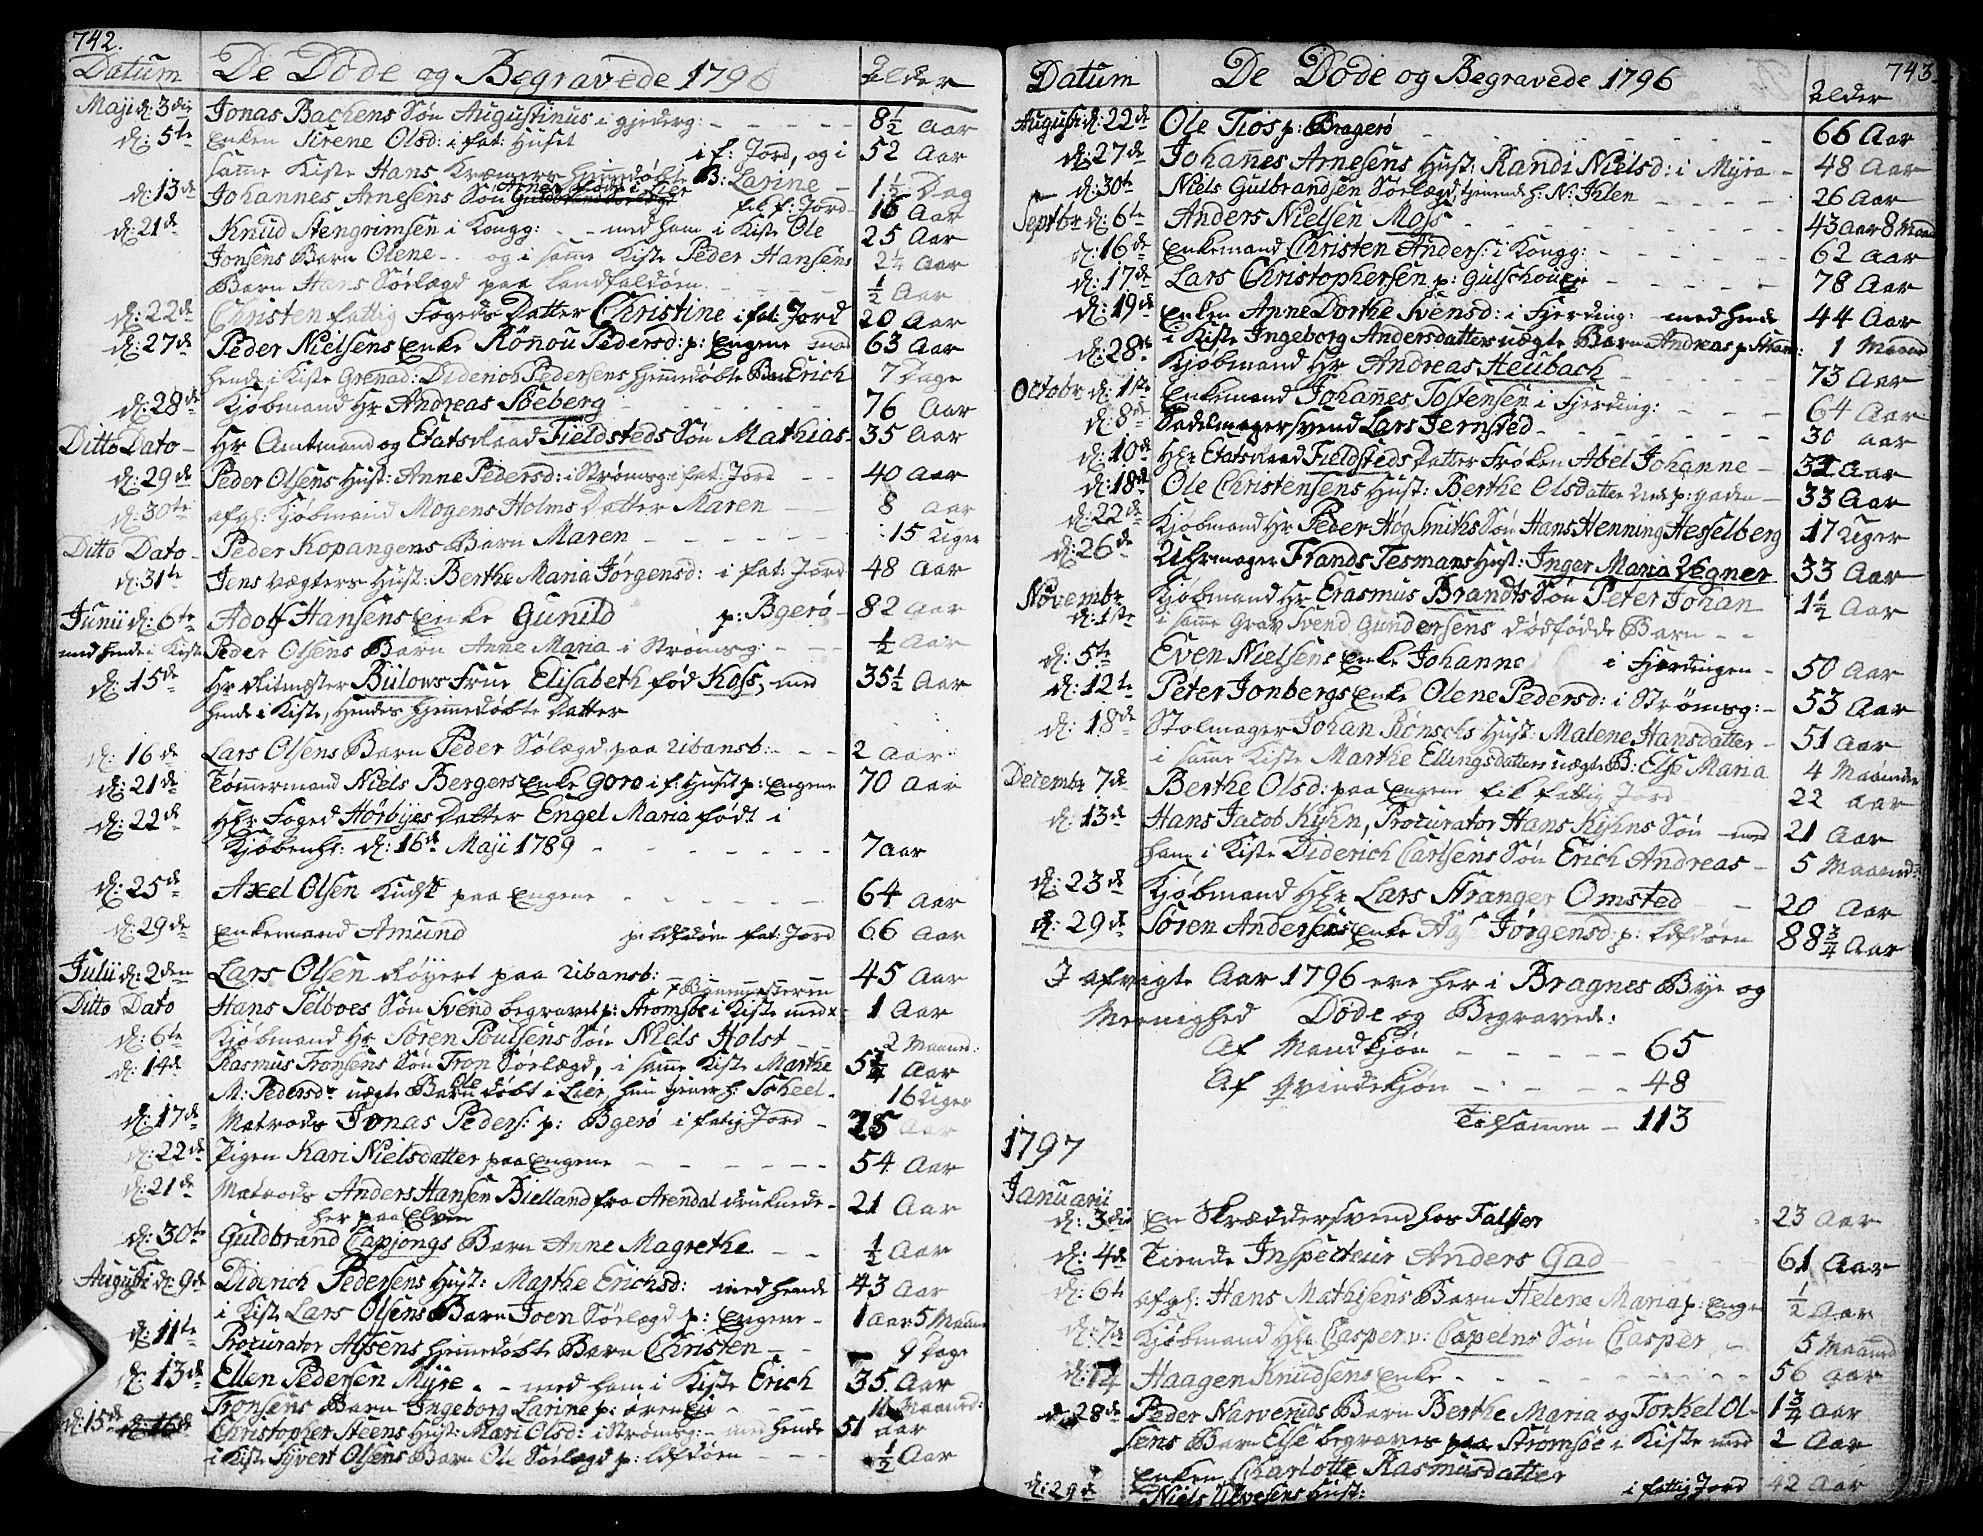 742.
Datum De Døde og Begravede 1796 Alder
Maji d: 3die Jonas Bachens Søn Augustinus i gjederg: 8½ Aar
d: 5te Enken Sirene Olsd: i fat: Huset i f: Jord, og i 52 Aar
samme Kiste Hans Kræmers hjemmedøbte B: Larine 1½ Dag
d: 13de Johannes Arnesens Søn fik f: Jord 16 Aar
d: 21de Knud Stengrimsen i Kongg: - - med ham i Kiste Ole 25 Aar
Jonsens Barn Olene - og i samme Kiste Peder Hansens 2¼ Aar
Barn Hans Sørlægd paa Landfaldøen ½ Aar
d: 22de Christen fattig Fogeds Datter Christine i fat: Jord 20 Aar
d: 27de Peder Nielsens Enke Rønou Pedersd: p: Engene med 63 Aar
hende i Kiste Grenad: Diderich Pedersens hjemmedøbte Barn Erich 7 Dage
d: 28de Kjøbmand Hr Andreas Søeberg 76 Aar
Ditto Dato - Hr Amtmand og Etatsraad Fieldsteds Søn Mathias - 35 Aar
d: 29de Peder Olsens Hust: Anne Pedersd: i Strømsg: fat: Jord 40 Aar
d: 30te afg: Kjøbmand Mogens Holms Datter Maren 8 aar
Ditto Dato - Peder Kopangens Barn Maren 15 Uger
d: 31te Jens Vægters Hust: Berthe Maria Jørgensd: i fat: Jord 48 Aar
Junii d: 6te Adolf Hansens Enke Gunild p: Bgerø - 82 Aar
med hende i Kiste Peder Olsens Barn Anne Maria i Strømsg: ½ Aar
d: 15de Hr Ritmester Bülows Frue Elisabeth fød Koss, med 35½ Aar
hende i Kiste, Hendes hjemmedøbte Datter
d: 16de Lars Olsens Barn Peder Sølægd paa Tibansb: 2 Aar
d: 21de Tømmermand Niels Bergers Enke Goro i f: Huset p: Engene 70 Aar
d: 22de Hr Foged Hørbyes Datter Engel Maria født i
Kjøbenh: d: 16de Maji 1789 7 aar
d: 25de Axel Olsen Kudsk paa Engene 64 Aar
d: 29de Enkemand Amund p: Ldfdøen fat: Jord 66 Aar
Julii d: 2den Lars Olsen Røyert paa Tibansb: 45 Aar
Ditto Dato Hans Selboes Søn Svend begravet p: Strømsøe i Kiste med x 1 Aar
d: 6te Kjøbmand Hr Søren Poulsens Søn Niels Holst 2 Maaned:
d: 14de Rasmus Tronsens Søn Tron Sørlægd, i samme Kiste Marthe 5¼ Aar
M: Pedersdr uægte Barn Ole døbt i Lier, hun tjener h: Scheel - 16 Uger
d: 17de Matrods Jonas Peders: p: Bgerø i fatig Jord - 25 Aar
d: 22de Pigen Kari Nielsdatter paa Engene 54 Aar
d: 21de Matrods Anders Hansen Bielland fra Arendal druknede 21 Aar
her paa Elven
d: 30te Guldbrand Capjongs Barn Anne Magrethe ½ Aar
Augusti d: 9de Diderich Pedersens Hust: Marthe Erichsd: med hende 43 Aar
i Kiste Lars Olsens Barn Joen Sørlægd p: Engene - 1 Aar 5 Maan
d: 11te Procurator Alsens hjemmedøbte Barn Christen 9 Dage
d: 13de Ellen Pedersen Myre - - med ham i Kiste Erich 35 Aar
Tronsens Barn Ingeborg Larine p: Ørenkji Maaned:
d: 15de Christopher Steens Hust: Mari Olsd: i Strømsg: - med hende 51 aar
i Kiste Syvert Olsens Barn Ole Sørlægd p: Ldfdøen ½ Aar
743.
Datum De Døde og Begravede 1796 Alder
Augusti d: 22de Ole Tios p: Bragerø 66 Aar
d: 27de Johannes Arnesens Hust: Randi Nielsd: i Myra - 48 Aar
d: 30te Niels Gulbrandsen Sørlægd, tjenende h: N: Ihlen 26 Aar
Septbr d: 6te Anders Nielsen Moss 43 Aar 8 Maan
d: 16de Enkemand Christen Anders: i Kongg: 62 aar
d: 17de Lars Christophersen p: Gulschouen 78 Aar
d: 19de Enken Anne Dorthe Svensd: i Fjerding: med hende 44 Aar
i Kiste Ingeborg Andersdatters uægte Barn Andreas p: 1 Maaned
d: 28de Kjøbmand Hr Andreas Heubach 73 Aar
Octobr d: 1ste Enkemand Johannes Tostensen i Fjerding: 64 Aar
d: 8de Sadelmagersvend Lars Jernsted 30 aar
d: 10de Hr Etatsraad Fieldsteds Datter Frøken Abel Johanne - 31 Aar
d: 18de Ole Christensens Hust: Berthe Olsdatter p: gaden - 33 Aar
d: 22de Kjøbmand Hr Peder Høg Smiths Søn Hans Henning Hesselberg 17 Uger
d: 26de Uhrmager Frands Tesmans Hust: Inger Maria Wegner 33 Aar
Novembr d: 1ste Kjøbmand Hr Erasmus Brandts Søn Peter Johan 1½ Aar
i samme Grav Svend Gundersens dødfødde Barn
d: 5te Even Nielsens Enke Johanne i Fjerdingen - 50 Aar
d: 12te Peter Jonbergs Enke Olene Pedersd: i Strømsg: - 53 Aar
d: 18de Stolmager Johan Rønschs Hust: Malene Hansdatter 51 Aar
i samme Kiste Marthe Ellingsdatters uægte B: Else Maria 4 Maaneder
Decembr 7de Berthe Olsd: paa Engene fik fattig Jord 22 aar
d: 13de Hans Jacob Kyhn, Procurator Hans Kyhns Søn - med 21 Aar
ham i Kiste Diderich Carlsens Søn Erich Andreas - 5 Maaned:
d: 23de Kjøbmand Hr Lars Stranger Omsted 20 Aar
d: 29de Søren Andersens Enke Jørgensd: p: Ldfdøen 88¾ Aar
I afvigte Aar 1796 ere her i Bragnes Bye og
Meenighed Døde og Begravede:
Af Mandkjøn - - - - 65
Af Qvindekjøn - - - 48
Tilsammen - 113
1797
Januarii
d: 3die En Skræddersvend hos Falster 23 Aar
d: 4de Tiende Inspecteur Anders Gad 61 Aar
d: 6te afg: Hans Mathisens Barn Helene Maria p: Engen ½ Aar
d: 7de Kjøbmand Hr Casper v: Capelns Søn Casper 5 Maaned
d: 14 Haagen Knudsens Enke 56 aar
d: 28de Peder Narveruds Barn Berthe Maria og Torkel Ol- 1¾ Aar
sens Barn Else begraves paa Strømsøe i Kiste med 2 Aar
Enken Charlotte Rasmusdatter
d: 29de Niels Ulvesens Hust: i fattig Jord 42 Aar